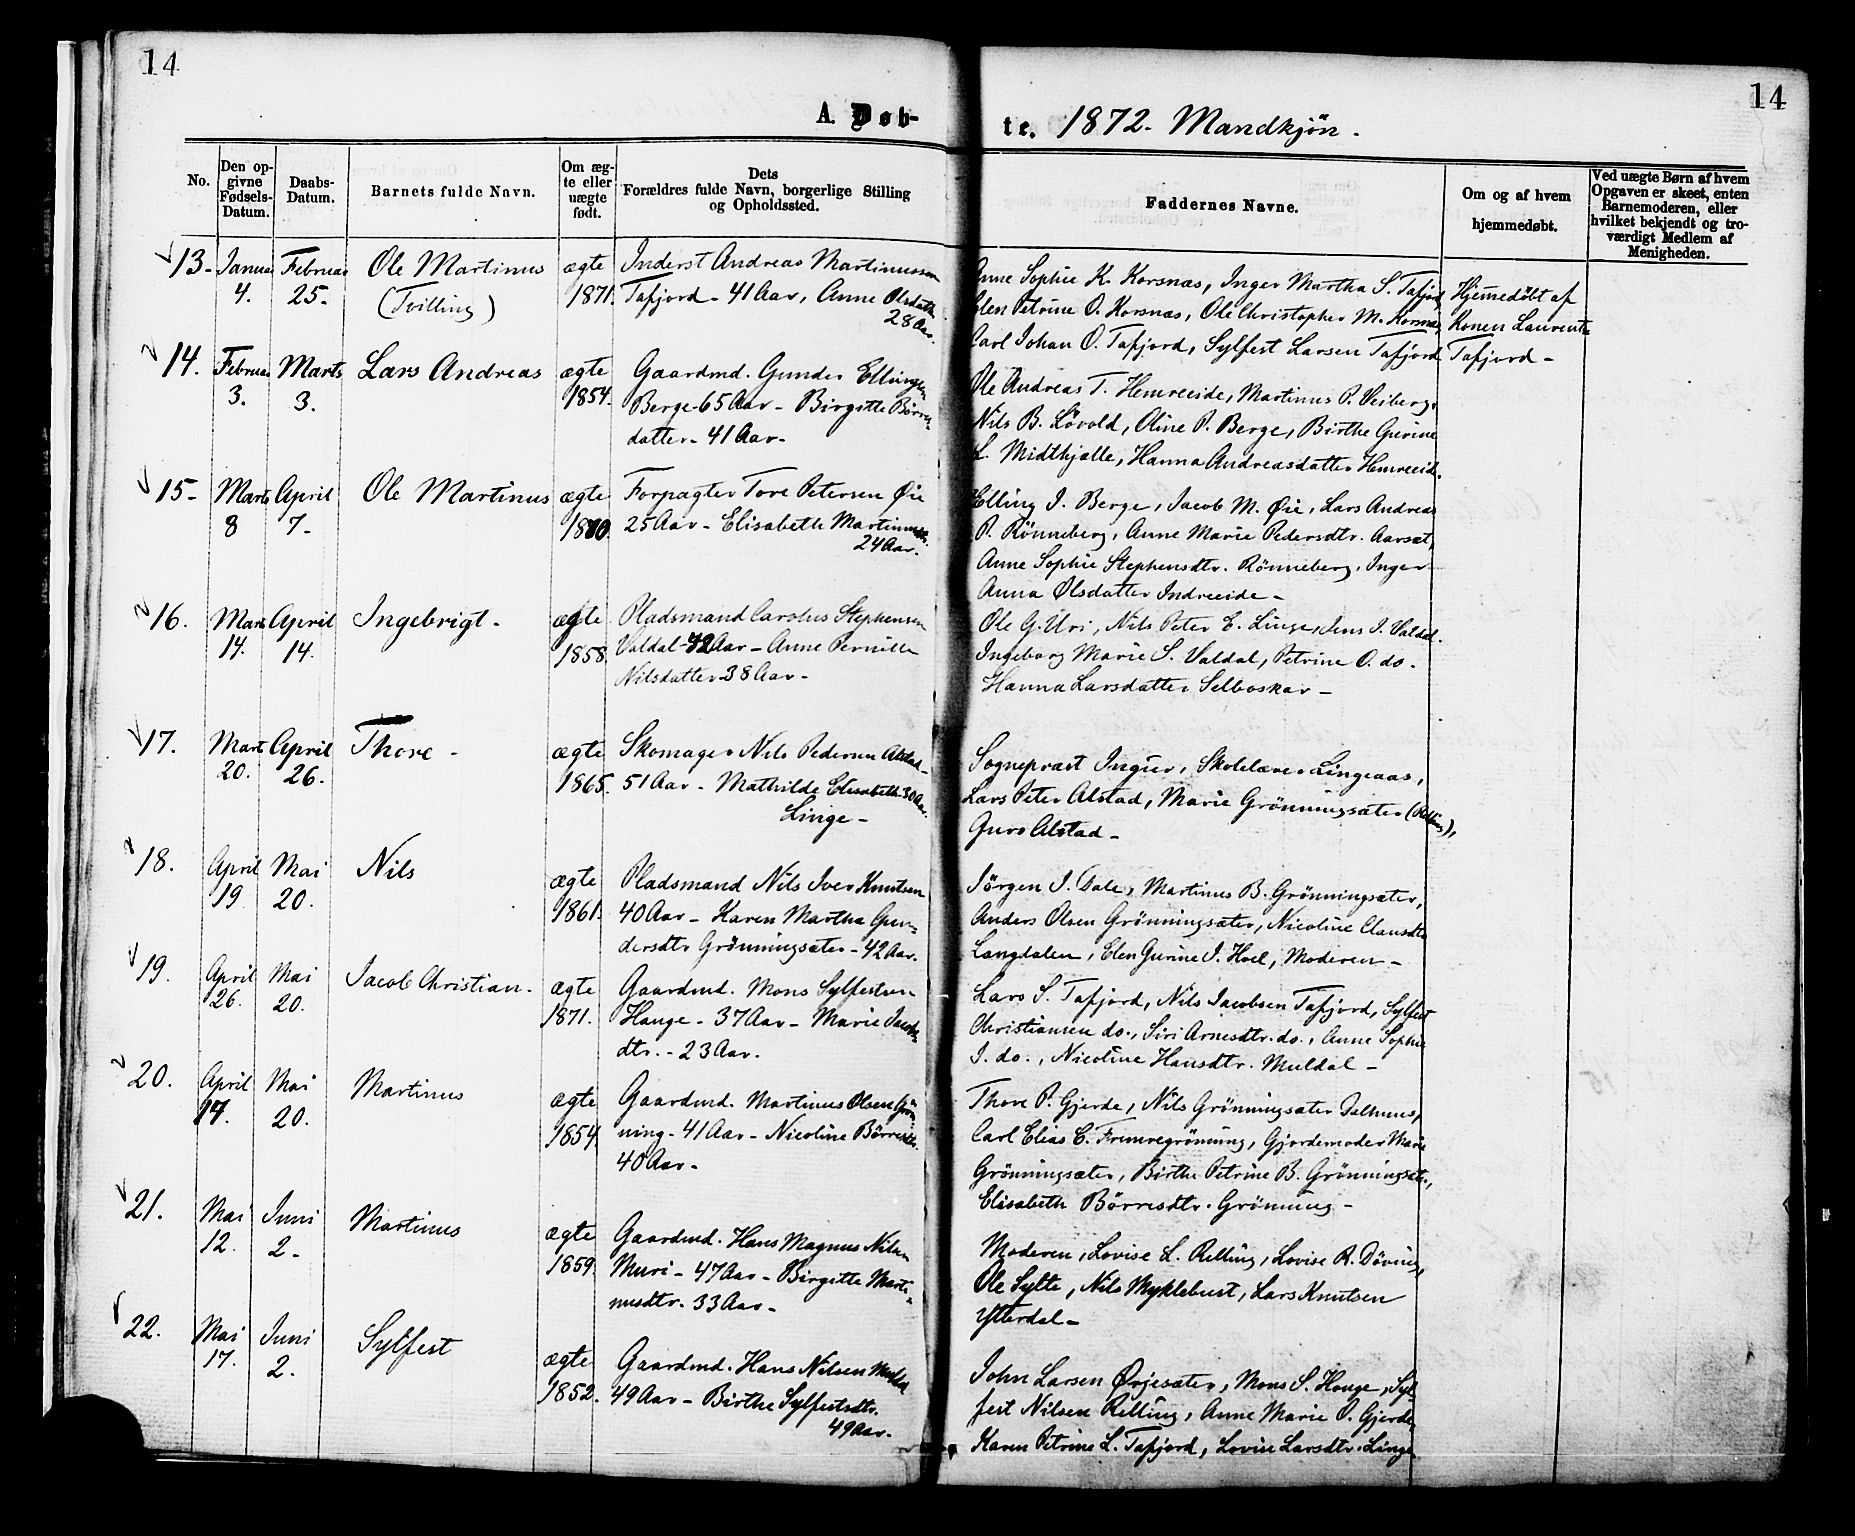 14
14
A. Døb-
te. 1872. Mandkjøn.
No.
Den op-
givne
Fødsels-
Datum.
Daabs-
Datum.
Barnets fulde Navn.
Om æg-
te eller
uægte
født.
Dets
Forældres fulde Navn, borgerlige Stilling
og Opholdssted.
Faddernes Navne.
Om og af hvem
hjemmedøbt.
Ved uægte Børn af hvem
Opgaven er skeet, enten
Barnemoderen, eller
hvilket bekjendt og tro-
værdigt Medlem af
Menigheden.
13. Januar 4. Februar 25. Ole Martinus
(Tvilling)
ægte
1871.
Inderst Andreas Martinussen
Tafjord - 41 Aar, Anne Olsdatt.
28 Aar.
Anne Sophie K. Korsnæs, Inger Martha S. Tafjord
Elen Petrine O. Korsnæs, Ole Christopher M. Korsnæs,
Carl Johan O. Tafjord, Sylfest Larsen Tafjord
Hjemedøbt af
Konen Laurentse
Tafjord -
14. Februar 3. Marts 3. Lars Andreas
ægte
1854.
Gaardmd. Gunder Ellingsen
Berge - 65 Aar - Birgitte Børre-
datter - 41 Aar -
Ole Andreas T. Hemreeide, Martinus P. Veiberg,
Nils B. Løvold, Oline P. Berge, Birthe Gurine
L. Midthjelle, Hanna Andreasdatter Hemreeide.
15 - Marts 8 April 7 - Ole Martinus
ægte
1870.
Forpagter Tore Petersen Øie
25 Aar - Elisabeth Martinusdtr.
24 Aar.
Elling J. Berge, Jacob M. Øie, Lars Andreas
P. Rønneberg, Anne Marie Pedersdtr. Aarset,
Anne Sophie Stephensdtr. Rønneberg, Inger
Anna Olsdatter Indreeide -
16. Marts 14. April 14. Ingebrigt -
ægte
1858.
Pladsmand Carolus Stephensen
Valdal - 42 Aar - Anne Pernille
Nilsdatter 38 Aar -
Ole G. Uri, Nils Peter E. Linge, Jens J. Valdal.
Ingeborg Marie S. Valdal, Petrine O. do.
Hanna Larsdatter Selboskar -
17. Marts 20. April 26. Thore -
ægte
1865.
Skomager Nils Pedersen Alstad -
51 Aar - Mathilde Elisabeth - 30 Aar.
Linge -
Sognepræst Ingier, Skolelærer Lingeaas,
Lars Peter Alstad, Marie Grønningsæter (Relling),
Guro Alstad -
18. April 19 Mai 20. Nils
ægte
1861.
Pladsmand Nils Iver Knutsen
40 Aar - Karen Martha Gun-
dersdtr Grønningsæter - 42 Aar.
Jørgen J. Dale, Martinus B. Grønningsæter,
Anders Olsen Grønningsæter, Nicoline Clausdtr
Langdalen, Elen Gurine J. Hoel, Moderen -
19. April 26. Mai 20. Jacob Christian -
ægte
1871.
Gaardmd. Mons Sylfestsen
Hauge - 37 Aar - Marie Jacobs
dtr. - 23 Aar.
Lars S. Tafjord, Nils Jacobsen Tafjord, Sylfest
Christiansen do., Siri Arnesdtr. do., Anne Sophie
J. do., Nicoline Hansdtr. Muldal -
20. April 17. Mai 20. Martinus
ægte
1854.
Gaardmd. Martinus Olsen Grøn
ning - 41 Aar - Nicoline Børresdtr.
40 Aar -
Thore P. Gjerde, Nils Grønningsæter Dalhuus,
Carl Elias C. Fremregrønning, Gjordemoder Marie
Grønningsæter, Birthe Petrine B. Grønningsæter,
Elisabeth Børresdtr. Grønning -
21. Mai 12. Juni 2 - Martinus
ægte
1859.
Gaardmd. Hans Magnus Nilsen
Muri - 47 Aar - Birgitte Marti-
nusdtr. 33 Aar -
Moderen, Lovise L. Relling, Lovise R. Døving,
Ole Sylte, Nils Myklebust, Lars Knutsen
Ytterdal -
22. Mai 17. Juni 2. Sylfest
ægte
1852.
Gaardmd. Hans Nilsen Muldal
49 Aar - Birthe Sylfestsdtr.
49 Aar.
John Larsen Ørjesæter, Mons S. Hauge, Syl-
fest Nilsen Relling, Anne Marie P. Gjerde,
Karen Petrine L. Tafjord, Lovise Larsdtr. Linge